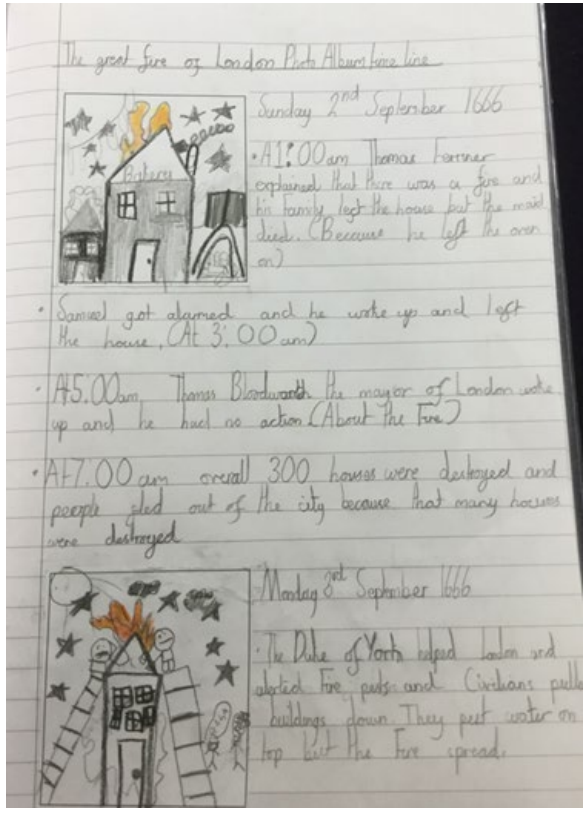 The great fire of London Photo Album time line
Sunday 2nd September 1666
Bakery
• At 1:00am Thomas Farriner
explained that there was a fire and
his family left the house but the maid
died. (Because he left the oven
on)
• Samuel got alarmed and he woke up and left
the house. (At 3:00am)
• At 5:00am, Thomas Bloodworth the mayor of London woke
up and he had no action (About the Fire)
• At 7:00am overall 300 houses were destroyed and
people fled out of the city because that many houses
were destroyed
Monday 3rd September 1666
• The Duke of York helped London and
Fire and Civilians pulled
buildings down. They put water on
top but the Fire spread.